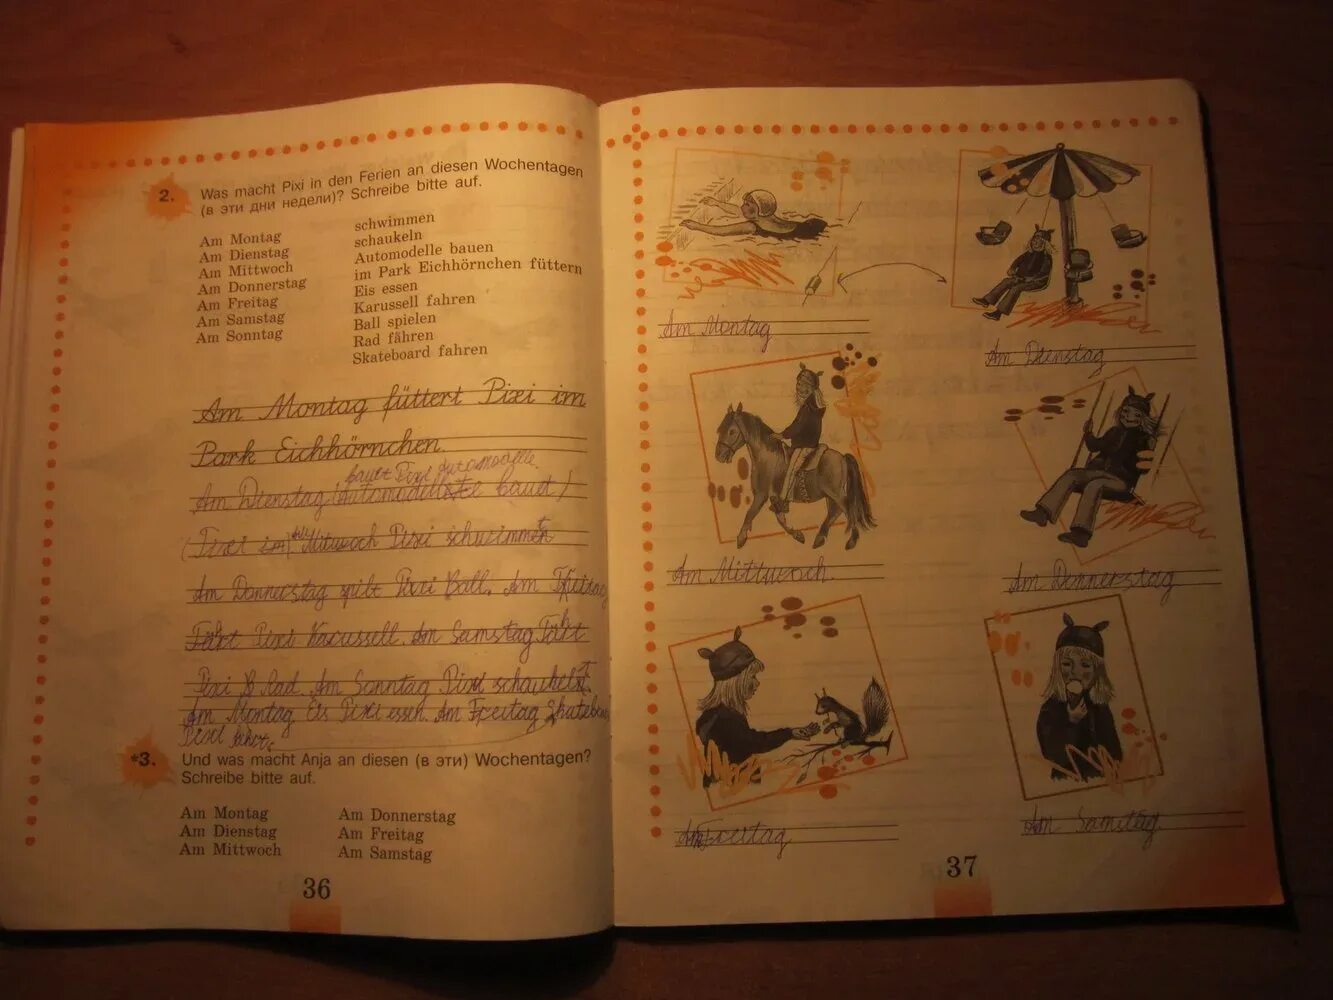 2.
Was macht Pixi in den Ferien an diesen Wochentagen
(в эти дни недели)? Schreibe bitte auf.
Am Montag
Am Dienstag
Am Mittwoch
Am Donnerstag
Am Freitag
Am Samstag
Am Sonntag
schwimmen
schaukeln
Automodelle bauen
im Park Eichhörnchen füttern
Eis essen
Karussell fahren
Ball spielen
Rad fahren
Skateboard fahren
Am Montag füttert Pixi im
Park Eichhörnchen.
baut Pixi Automodelle.
Am Dienstag baut
Pixi Mitwoch Pixi schwimmt
Am Donnerstag spilt Pixi Ball. Am Freitag
Fährt Pixi Karussell. Am Samstag Fährt
Pixi Rad. Am Sonntag Pixi schaukelt
Am Montag Eis Pixi essen. Am Freitag
Pixi fährt.
*3.
Und was macht Anja an diesen (в эти) Wochentagen?
Schreibe bitte auf.
Am Montag
Am Dienstag
Am Mittwoch
Am Donnerstag
Am Freitag
Am Samstag
36
Am Montag
Am Dienstag
Am Mittwoch.
Am Donnerstag
Am Freitag
Am Samstag.
37